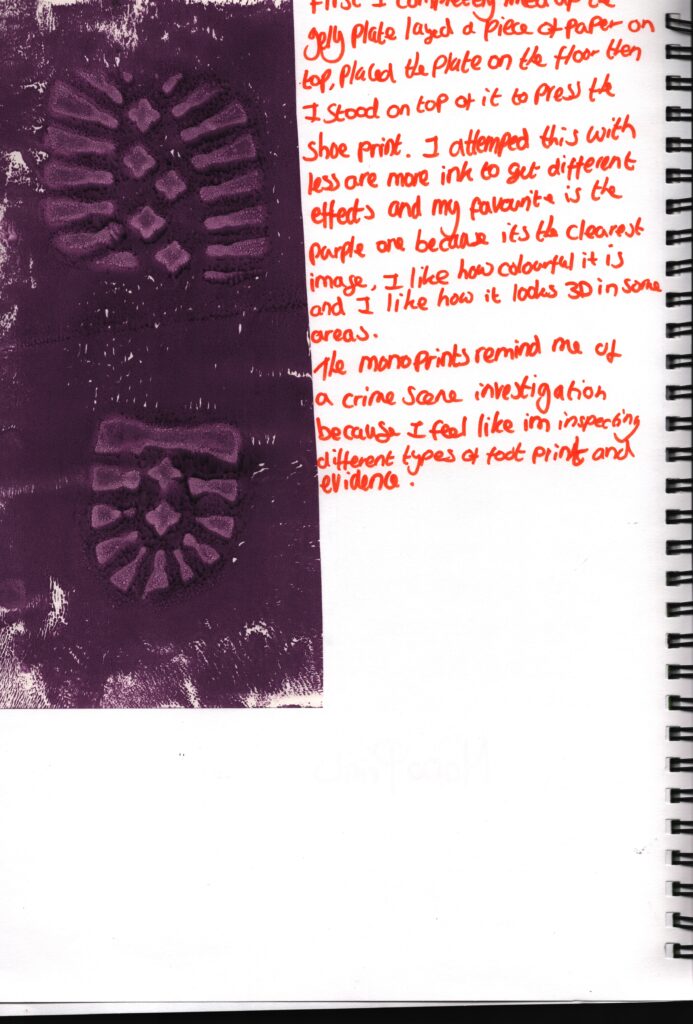 First I completely inked up the
gelly plate layed a piece of paper on
top, placed the plate on the floor then
I stood on top of it to press the
shoe print. I attemped this with
less are more ink to get different
effects and my favourite is the
purple one because its the clearest
image, I like how colourful it is
and I like how it looks 3D in some
areas.
The monoprints remind me of
a crime scene investigation
because I feel like im inspecting
different types of foot print and
evidence.